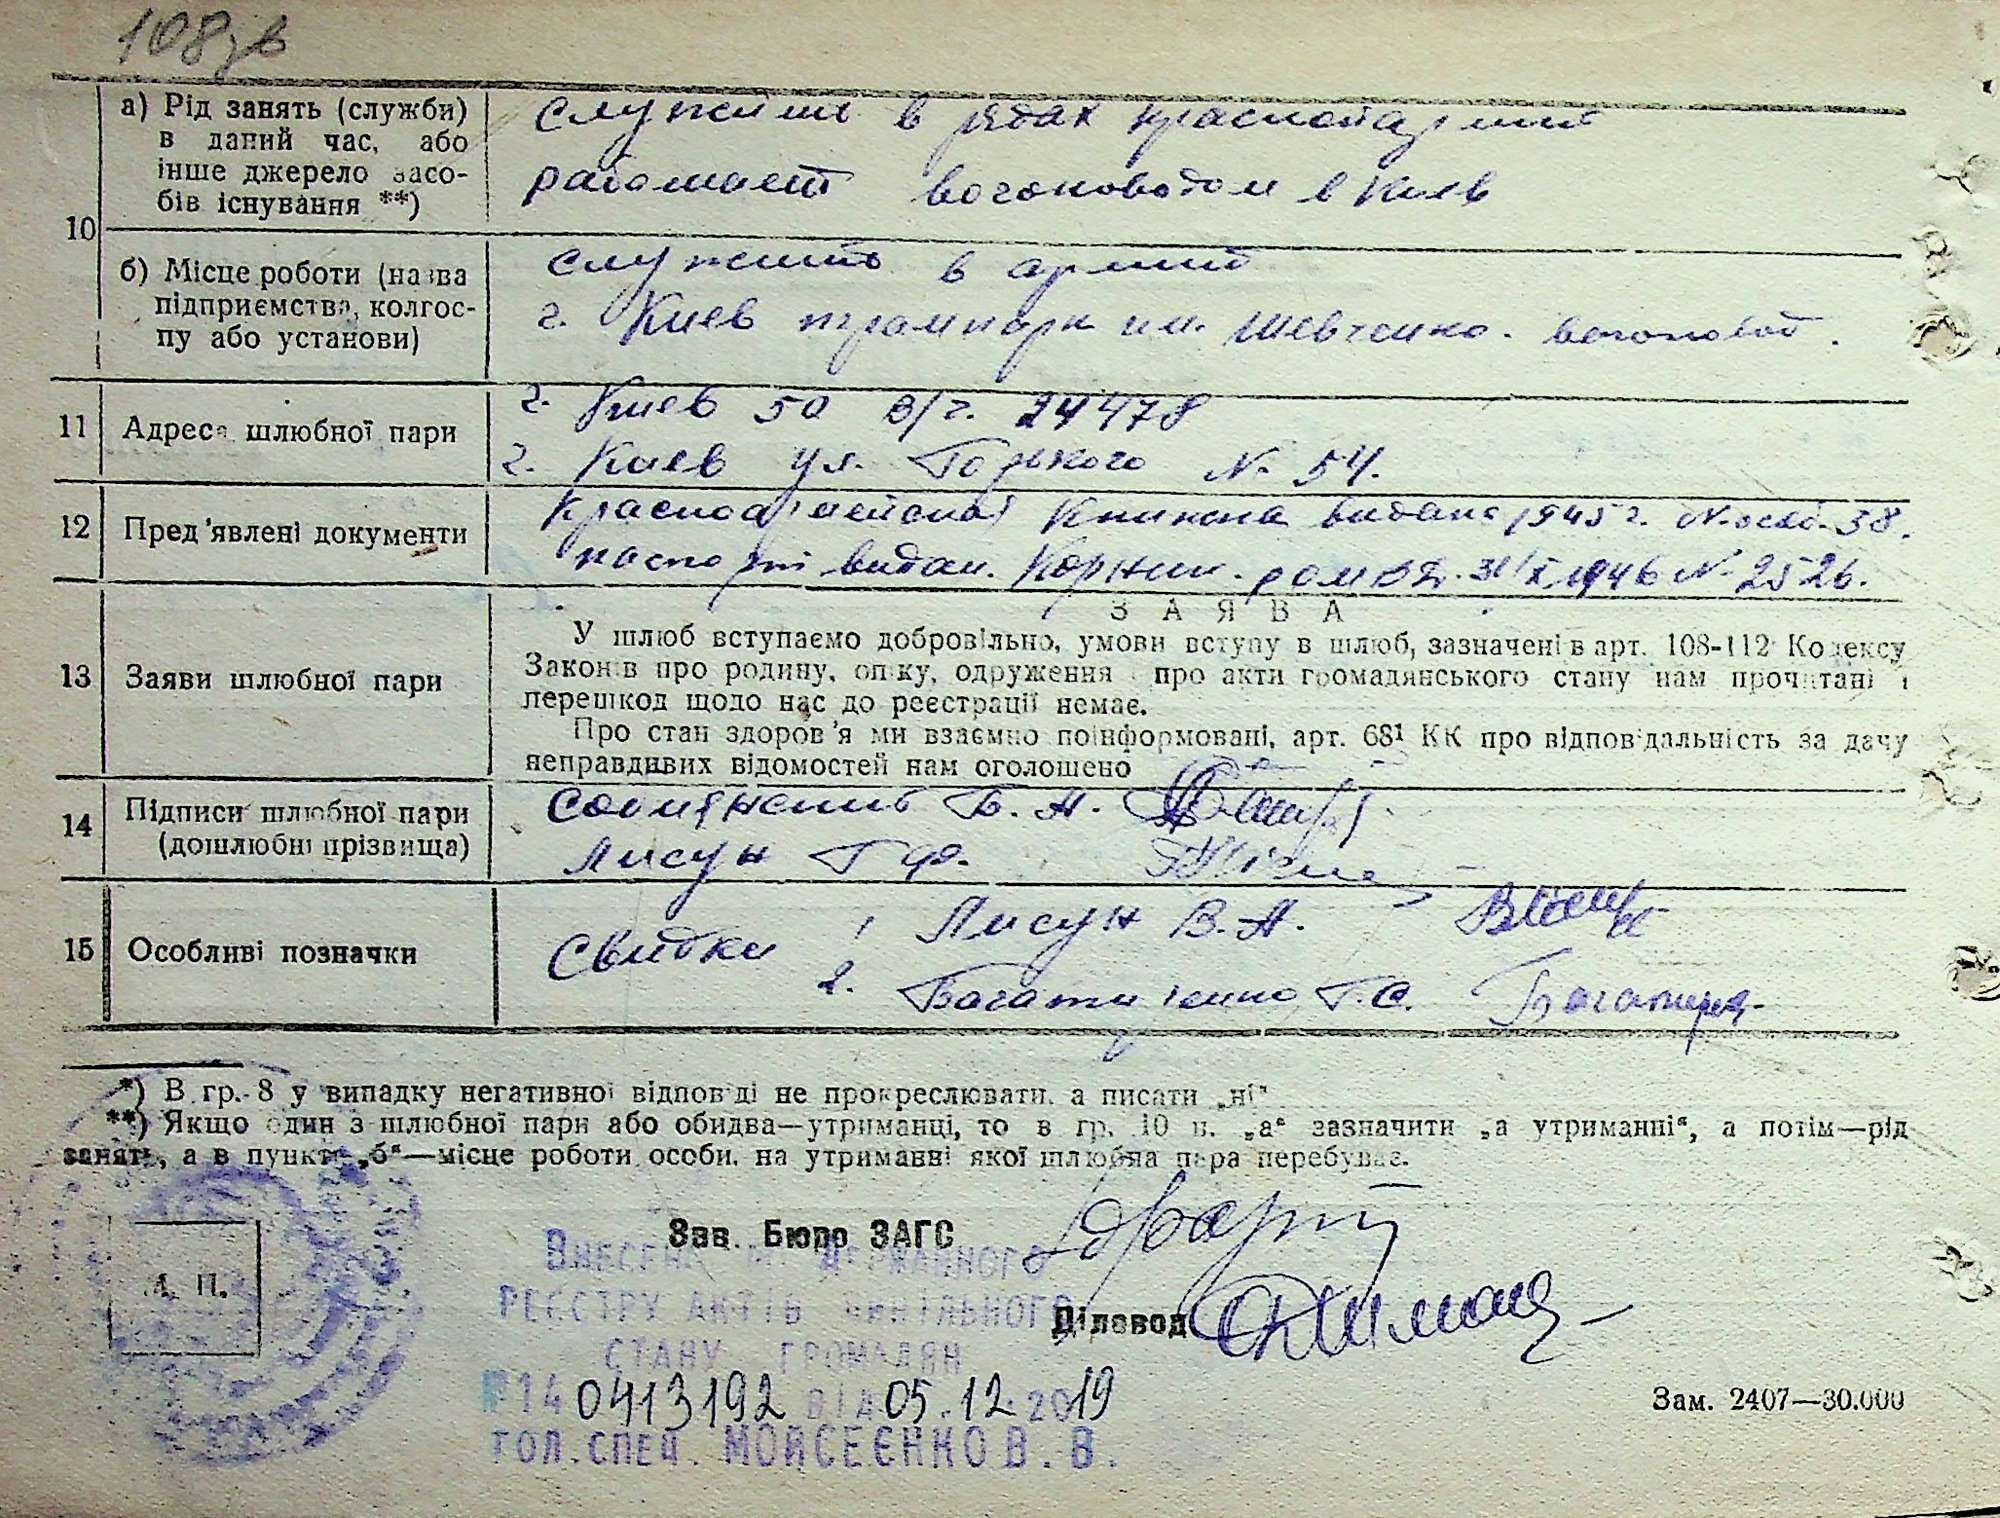 108зв
а) Рід занять (служби)
в даний час, або
інше джерело засо-
бів існування **)
служить в рядах
работает вогоноводом в Киев
10
б) Місце роботи (назва
підприємства, колгос-
пу або установи)
служить в армии
г. Киев трампарк им. Шевченко. вогоновод.
11 Адреса шлюбної пари
г. Киев 50 в/ч. 24478
г. Киев ул. Горького №. 54.
12 Пред'явлені документи
Красноармейская Книжка видана 1945 г. № 38.
паспорт видан. Корнин. 1946 № 2526.
13 Заяви шлюбної пари
ЗАЯВА
У шлюб вступаємо добровільно, умови вступу в шлюб, зазначені в арт. 108-112 Кодексу
Законів про родину, опіку, одруження і про акти громадянського стану нам прочитані і
перешкод щодо нас до реєстрації немає.
Про стан здоров'я ми взаємно поінформовані, арт. 68¹ КК про відповідальність за дачу
неправдивих відомостей нам оголошено
14 Підписи шлюбної пари
(дошлюбні прізвища)
Б. Н.
Лисун Г Ф.
15 Особливі позначки
Свидки 1 Лисун В. А.
2. Г. С.
*) В гр. 8 у випадку негативної відповіді не прокреслювати, а писати „ні"
**) Якщо один з шлюбної пари або обидва—утриманці, то в гр. 10 п. „а" зазначити „а утриманні", а потім—рід
занять, а в пункті „б"—місце роботи особи, на утриманні якої шлюбна пара перебуває.
Зав. Бюро ЗАГС
М. П.
Внесено до Державного
реєстру актів цивільного
стану громадян
Діловод
№ 14 0413192 від 05.12.2019
гол. спец. Мойсеєнко В. В.
Зам. 2407—30.000